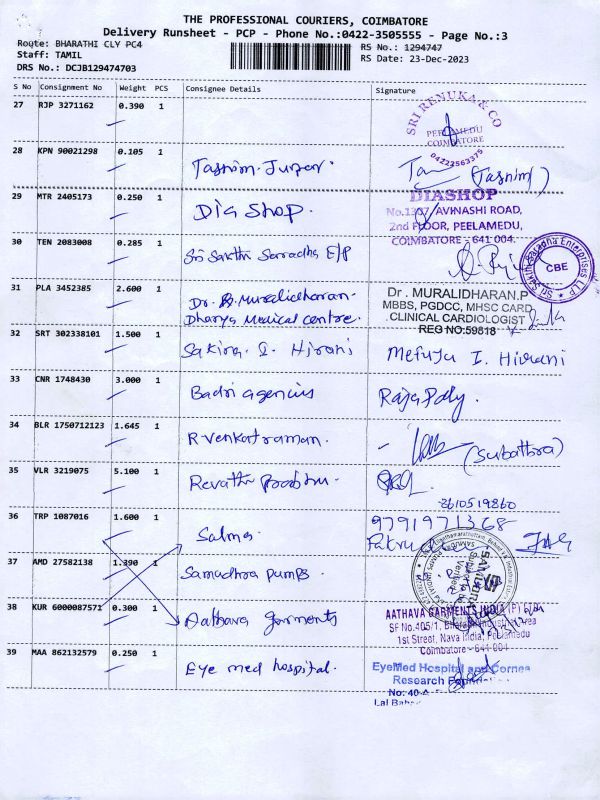 THE PROFESSIONAL COURIERS, COIMBATORE
Delivery Runsheet - PCP - Phone No.:0422-3505555 - Page No.:3
Route: BHARATHI CLY PC4
Staff: TAMIL
DRS No.: DCJB129474703
RS No.: 1294747
RS Date: 23-Dec-2023
S No Consignment No Weight PCS Consignee Details Signature
27 RJP 3271162 0.390 1
SRI RENUKA & CO
PEELAMEDU
COIMBATORE
04222563375
28 KPN 90021298 0.105 1
Tasnim (Tasnim)
29 MTR 2405173 0.250 1
Dia Shop.
DIASHOP
No.1307, AVINASHI ROAD,
2nd FLOOR, PEELAMEDU,
COIMBATORE - 641 004.
30 TEN 2083008 0.285 1
Sri Sakthi Sarradha E/P
Sri Sakthi Saradha Enterprises LLP
CBE
31 PLA 3452385 2.600 1
Dr. Muralidharan-
Dharya Medical Centre.
Dr. MURALIDHARAN.P
MBBS, PGDCC, MHSC CARD
CLINICAL CARDIOLOGIST
REG NO:59818
32 SRT 302338101 1.500 1
Sakina. I. Hirani
Mefuja I. Hirani
33 CNR 1748430 3.000 1
Badri agencies
Raja Pally.
34 BLR 1750712123 1.645 1
R Venkatraman.
(Subathra)
35 VLR 3219075 5.100 1
Revathi Prabhu.
3610519860
36 TRP 1087016 1.600 1
Salma.
9791971368
37 AMD 27582138 1.390 1
Samudhra pumps.
38 KUR 6000087571 0.300 1
Aathava garments
AATHAVA GARMENTS INDIA (P) LTD
SF No.405/1, Bharathi Industrial Area
1st Street, Nava India, Peelamedu
Coimbatore - 641 004
39 MAA 862132579 0.250 1
Eye med hospital.
EyeMed Hospital and Cornea
Research
No: 40-A
Lal Baha